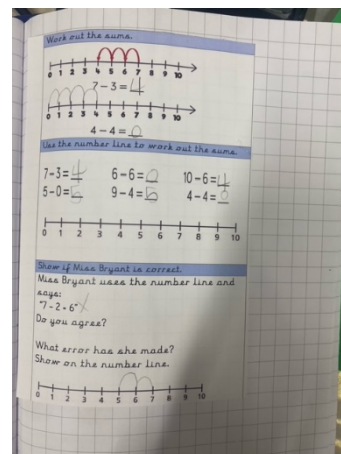 Work out the sums.
0 1 2 3 4 5 6 7 8 9 10
7-3=4
0 1 2 3 4 5 6 7 8 9 10
4-4=0
Use the number line to work out the sums.
7-3=4 6-6=0 10-6=4
5-0=5 9-4=5 4-4=0
0 1 2 3 4 5 6 7 8 9 10
Show if Miss Bryant is correct.
Miss Bryant uses the number line and
says:
"7-2=6" X
Do you agree?
What error has she made?
Show on the number line.
0 1 2 3 4 5 6 7 8 9 10